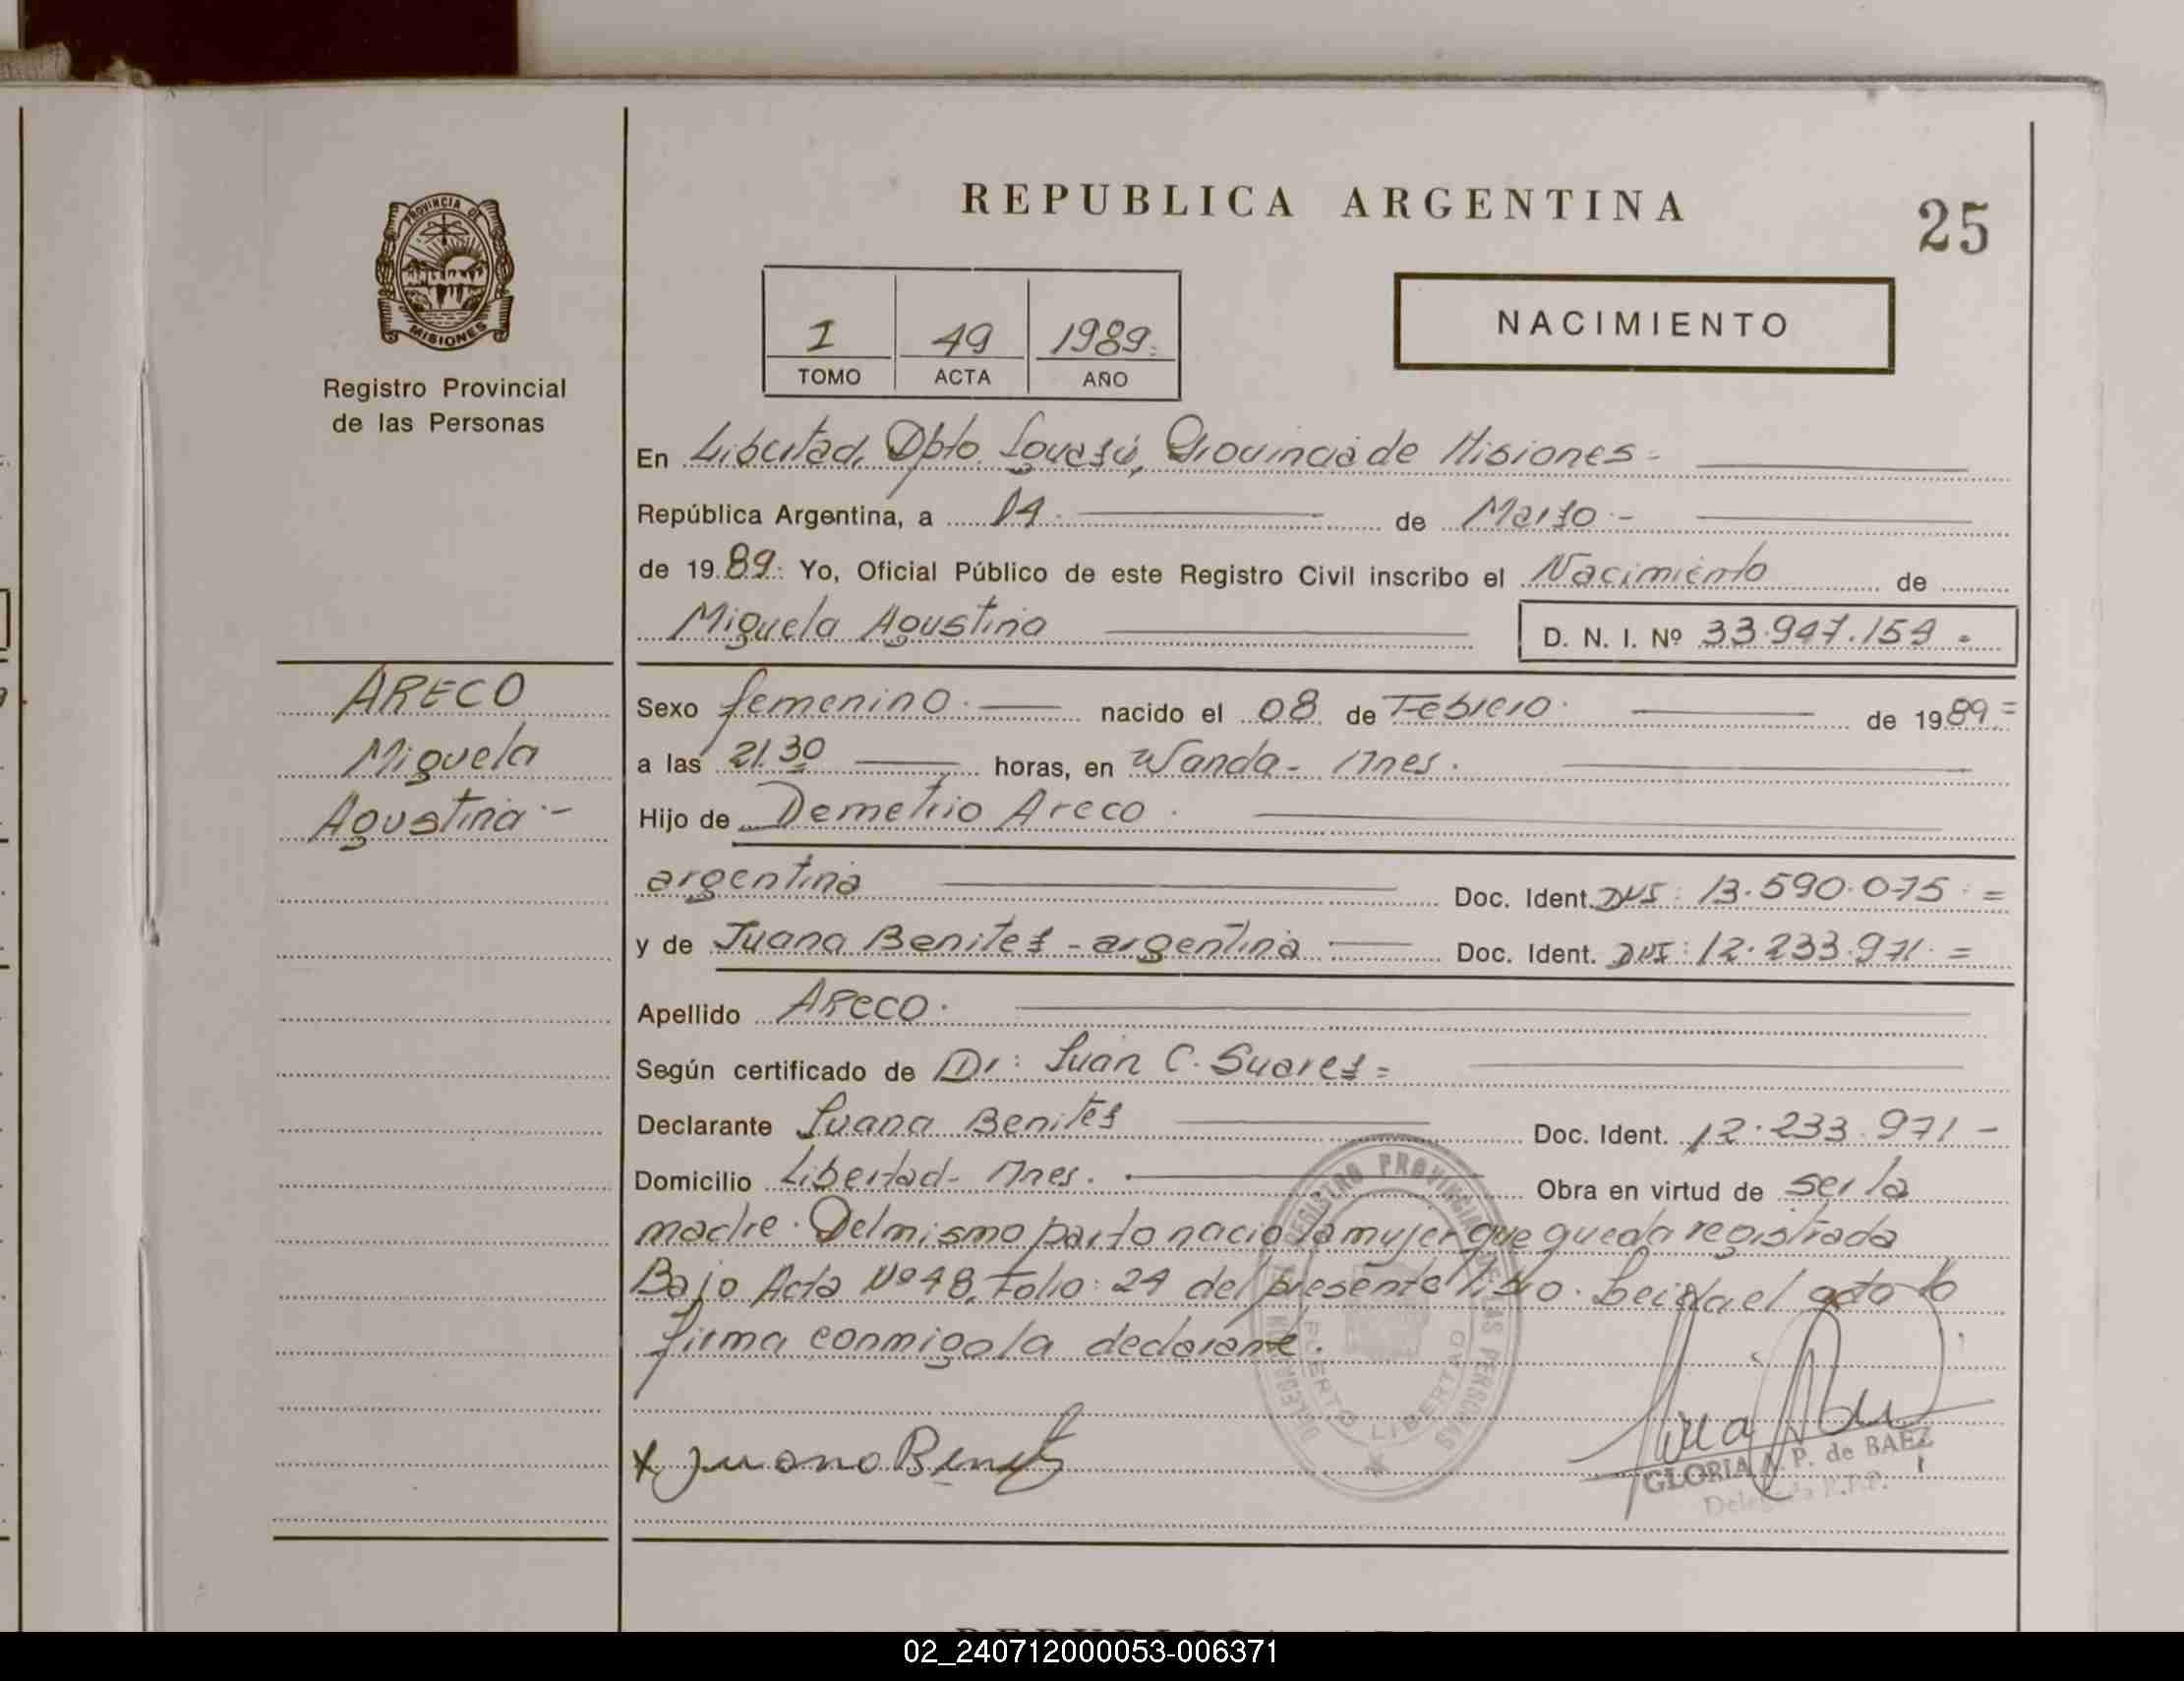 REPUBLICA ARGENTINA
25
PROVINCIA DE
MISIONES
Registro Provincial
de las Personas
I 49 1989.
TOMO ACTA AÑO
NACIMIENTO
En Libertad, Dpto. Iguasú, Provincia de Misiones=
República Argentina, a 14.- de Marzo.-
de 1989: Yo, Oficial Público de este Registro Civil inscribo el Nacimiento de
Miguela Agustina D. N. I. Nº 33.947.154=
ARECO
Miguela
Agustina.-
Sexo femenino.- nacido el 08 de Febrero. de 1989=
a las 21.30 horas, en Wanda- Mnes.
Hijo de Demetrio Areco.
argentina Doc. Ident. DNI: 13.590.075.=
y de Juana Benitez - argentina.- Doc. Ident. DNI: 12.233.971.=
Apellido Areco.
Según certificado de Dr: Juan C. Suarez=
Declarante Juana Benitez Doc. Ident. 12.233.971-
Domicilio Libertad- Mnes. Obra en virtud de ser la
madre. Del mismo parto nació la mujer que queda registrada
Bajo Acta Nº 48, Folio: 24 del presente libro. Leida el acta lo
firma conmigo la declarante.
REGISTRO PROVINCIAL DE LAS PERSONAS
PUERTO LIBERTAD
x Juana Benitez
GLORIA P. de BAEZ
Delegada R.P.P.
02_240712000053-006371